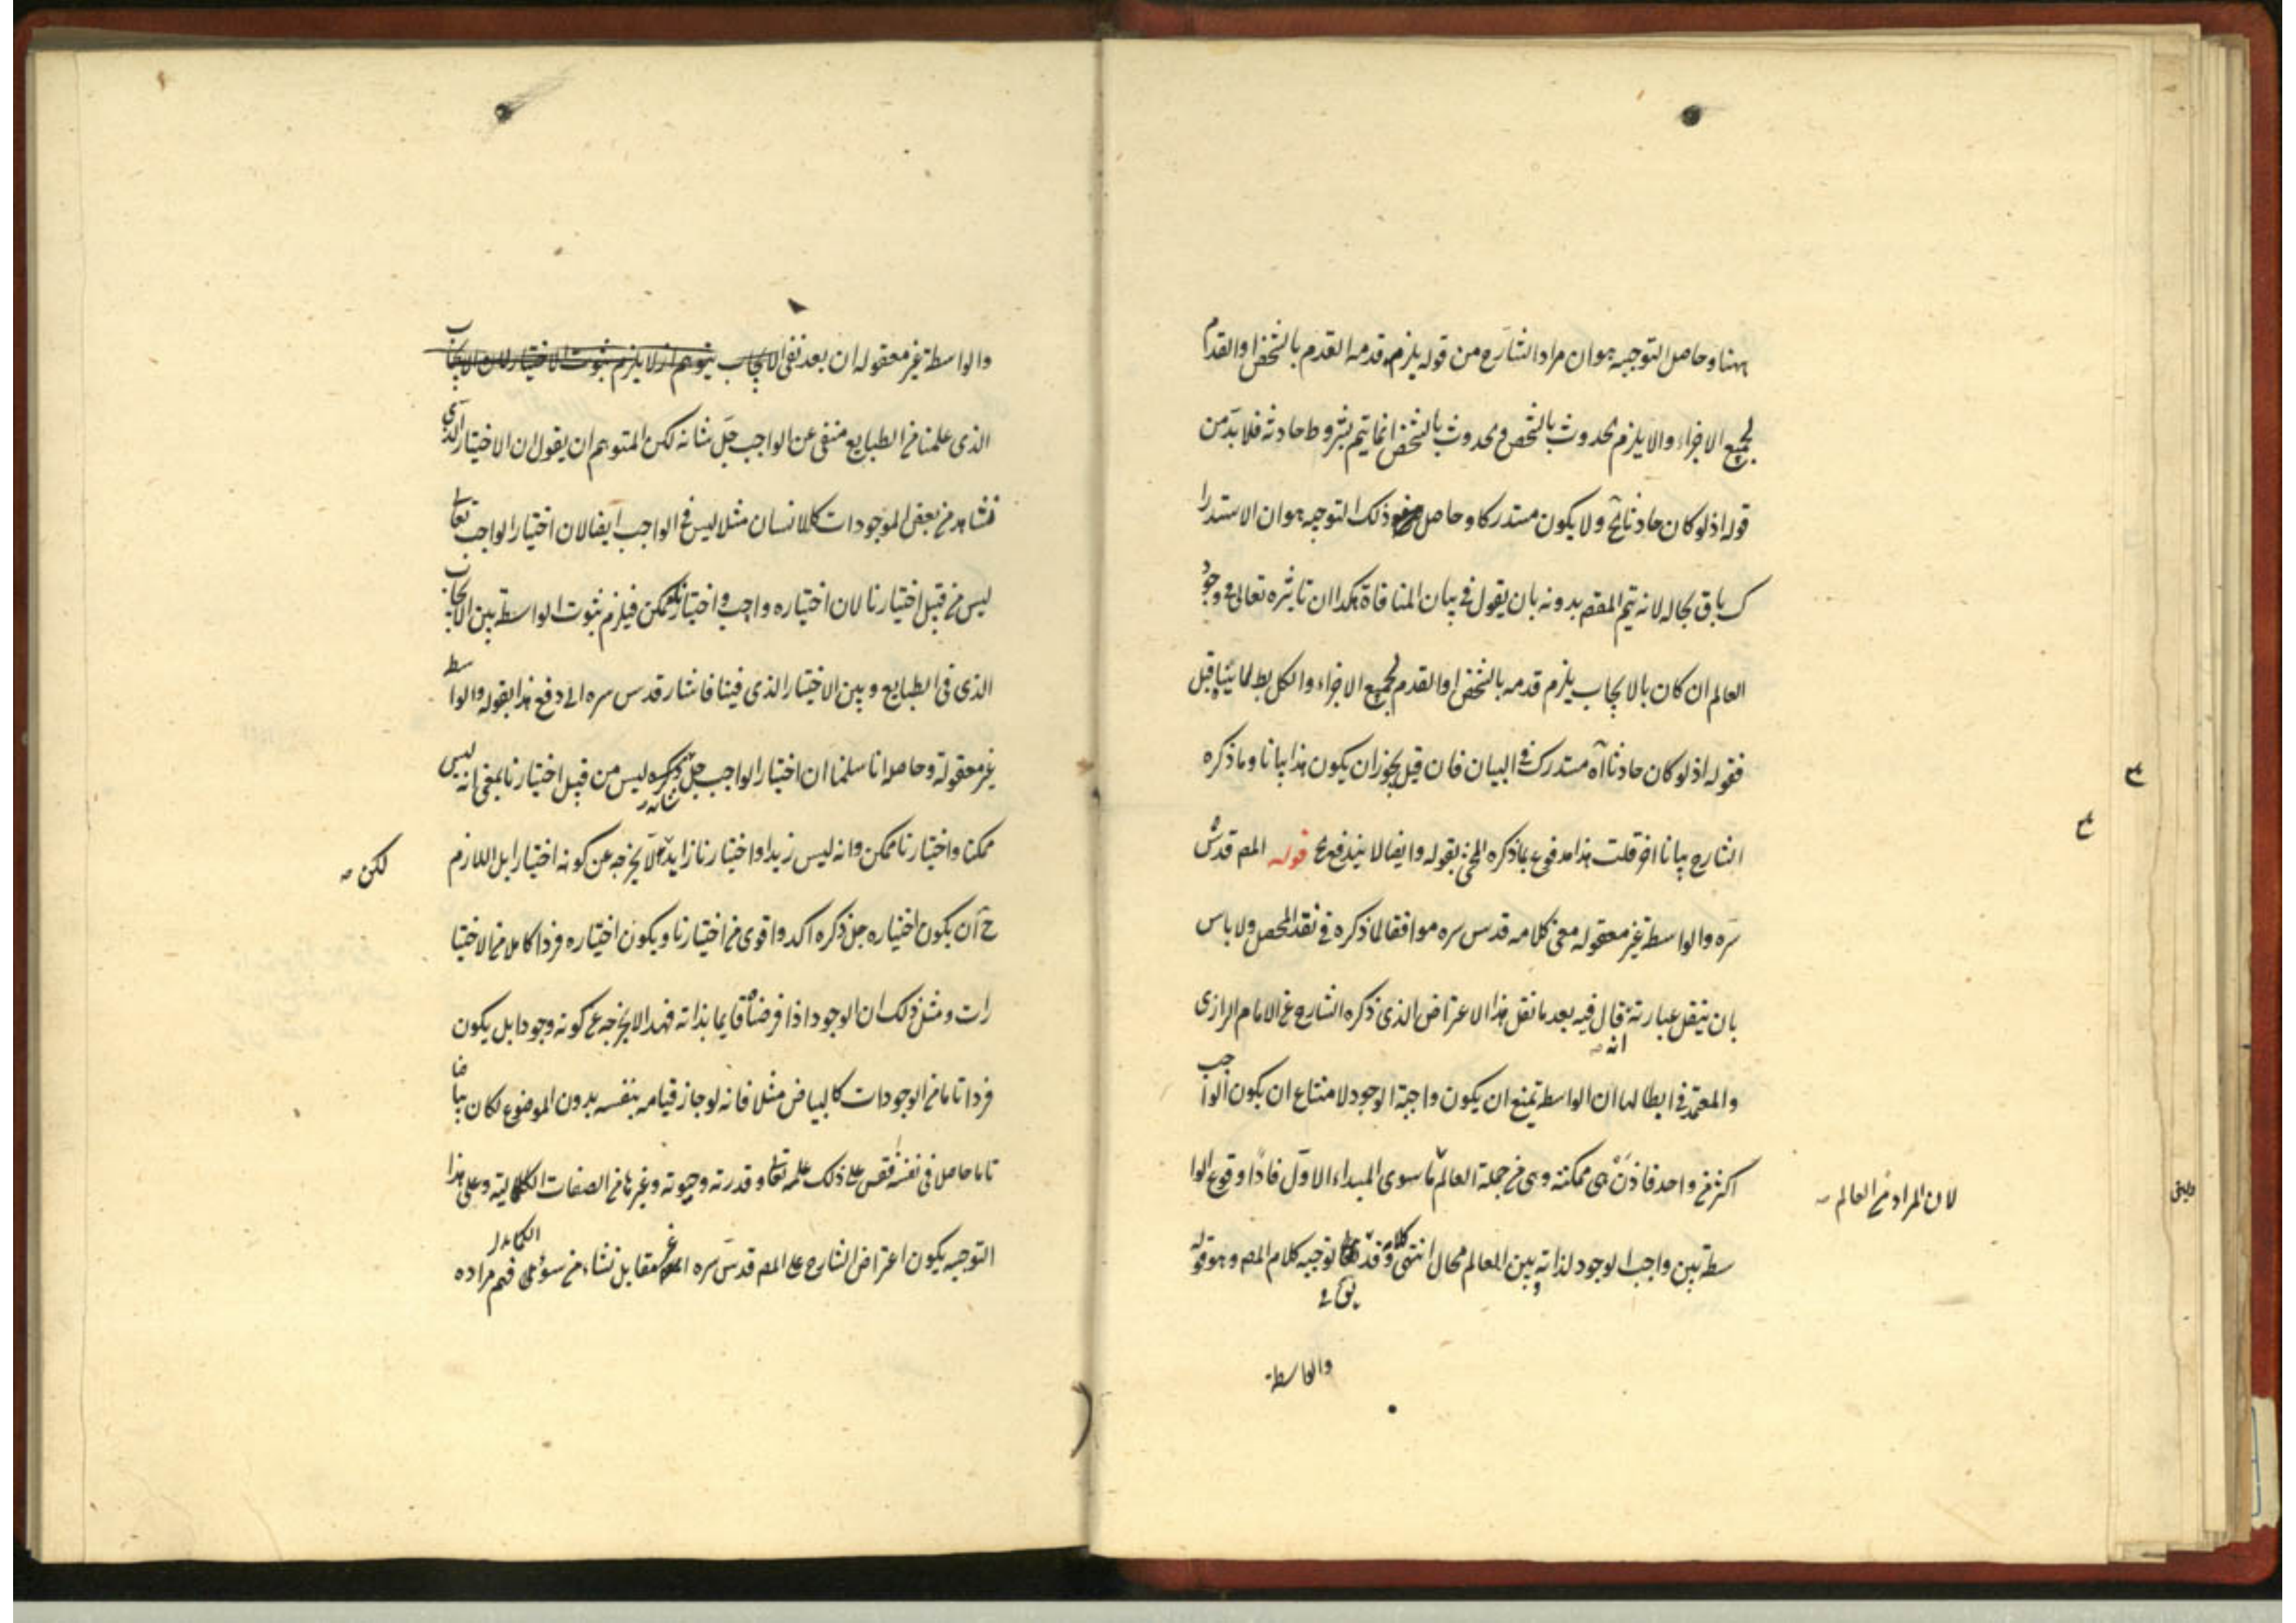 ههنا وحاصل التوجيه هو ان مراد الشارح من قوله يلزم قدمه القدم بالشخص او القدم
لجميع الاجزاء والا يلزم حدوث بالشخص وحدوث بالشخص انما يتم بشروط حادثة فلا بد من
قوله اذ لو كان حادثا الخ ولا يكون مستدركا وحاصل ذلك التوجيه هو ان الاستدرا
ك باق بحاله لانه يتم المقصد بدونه بان يقول في بيان المنافاة هكذا ان تاثيره تعالى في وجود
العالم ان كان بالايجاب يلزم قدمه بالشخص او القدم لجميع الاجزاء والكل بط لما قبل
فقوله اذ لو كان حادثا آه مستدرك في البيان فان قيل يجوز ان يكون هذا بيانا وما ذكره
الشارح بيانا اخر قلت هذا مدفوع بما ذكره المحشي بقوله وايضا لا يندفع ح قوله المص قدس
سره والواسطة غير معقوله معنى كلامه قدس سره موافقا لما ذكره في نقد المحصل ولا باس
بان ينقل عبارته قال فيه بعد ما نقل هذا الاعتراض الذي ذكره الشارح عن الامام الرازي
انه
والمعتمد في ابطالها ان الواسطة يمتنع ان يكون واجبة الوجود لامتناع ان يكون الواجب
اكثر من واحد فاذن هي ممكنة وهي من جملة العالم ما سوى المبداء الاول فاذا وقوع الوا
لان المراد من العالم
سطة بين واجب الوجود لذاته وبين العالم محال انتهى كلامه وقد توجيه كلام المص وهو قوله
والواسطة
والواسطة غير معقوله ان بعد نفى الايجاب يتوهم انه لا يلزم ثبوت الاختيار لان الايجاب
الذي علمنا من الطبايع منفى عن الواجب جل شانه لكن المتوهم ان يقول ان الاختيار الذي
نشاهد من بعض الموجودات كالانسان مثلا ليس في الواجب ايضا لان اختيار الواجب تعالى
ليس من قبيل اختيارنا لان اختياره واجب واختيارنا ممكن فيلزم ثبوت الواسطة بين الايجاب
الذي في الطبايع وبين الاختيار الذي فينا فاشار قدس سره الى دفع هذا بقوله والواسط
غير معقولة وحاصله انا سلمنا ان اختيار الواجب جل شانه ليس من قبيل اختيارنا بمعنى انه ليس
ممكنا واختيارنا ممكن وانه ليس زيدا واختيارنا زايد لا يخرجه عن كونه اختيارا بل اللازم
لكن
ح ان يكون اختياره جل ذكره اكد واقوى من اختيارنا ويكون اختياره فردا كاملا من الاختيا
رات ومثل ذلك ان الوجود اذا فرضناه قايما بذاته فهذا لا يخرجه عن كونه وجودا بل يكون
فردا تاما من الوجودات كالبياض مثلا فانه لو جاز قيامه بنفسه بدون الموضوع لكان بياضا
تاما حاصل في نفسه فقس على ذلك علمه تعالى وقدرته وحيوته وغيرها من الصفات الكمالية وعلى هذا
التوجيه يكون اعتراض الشارح على المص قدس سره غير مقابل نشاء من سوء فهم مراده